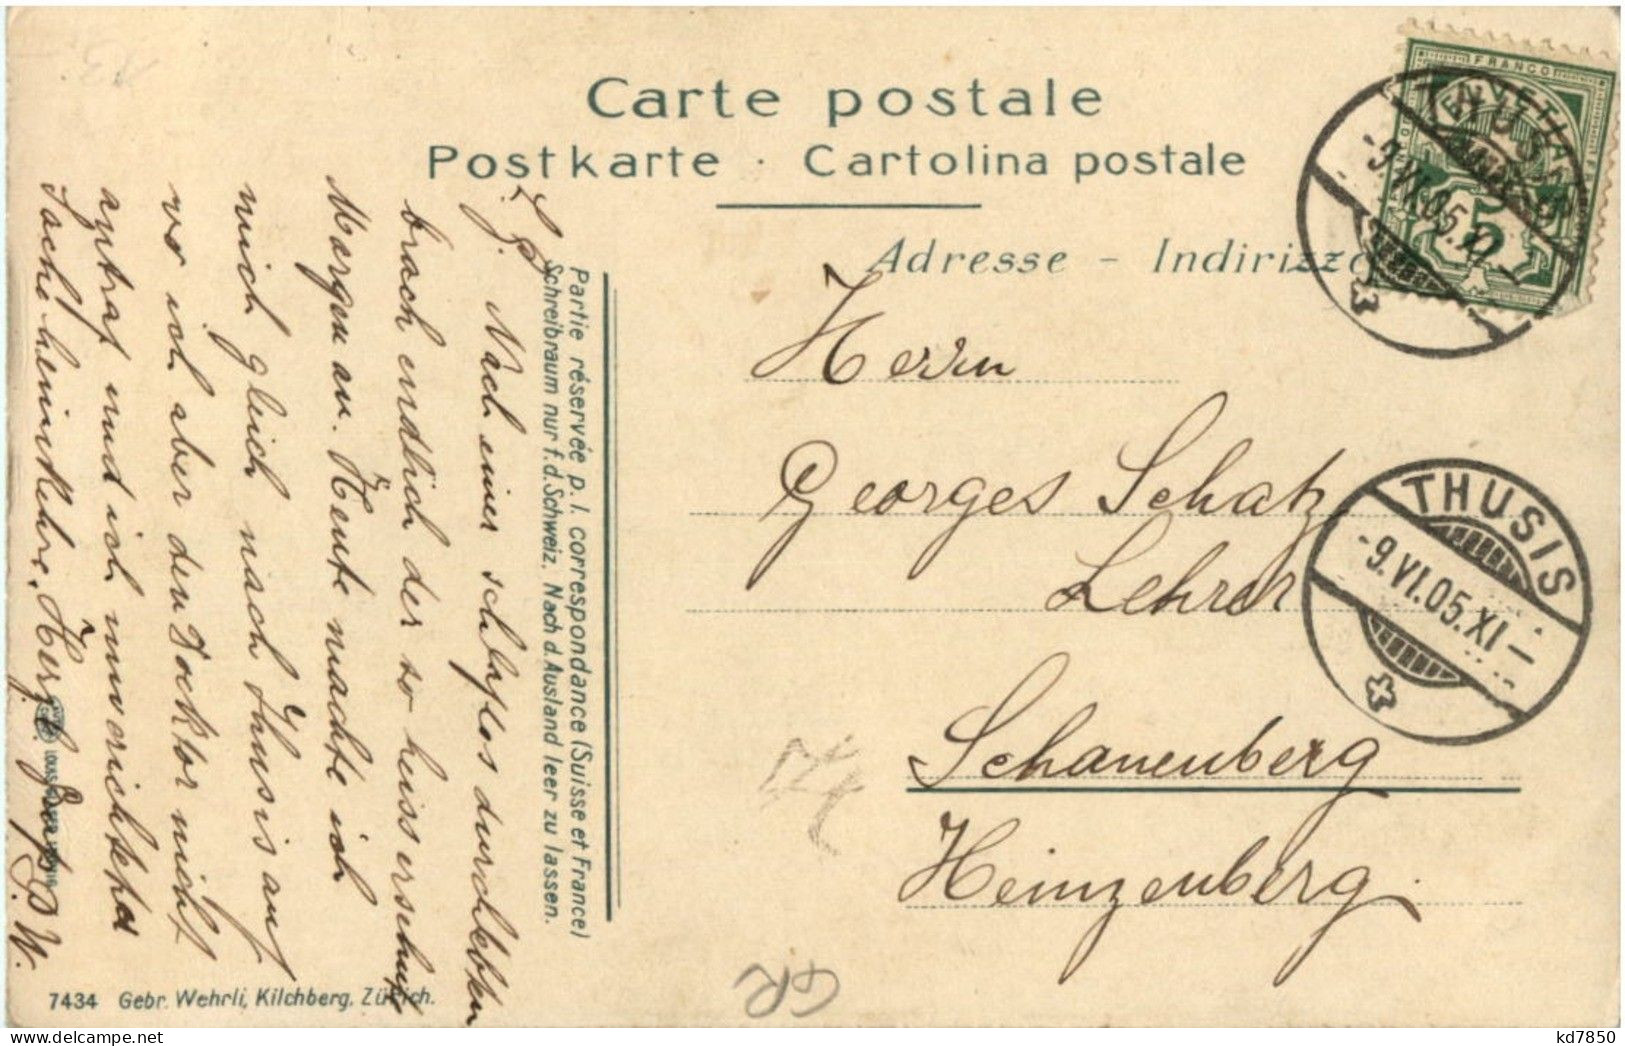 Carte postale
Postkarte · Cartolina postale
Adresse - Indirizzo
FRANCO
HELVETIA
5
THUSIS
-9.VI.05.XI-
Herrn
Georges Schatz
Lehrer
Schauenberg
Heinzenberg.
THUSIS
-9.VI.05.XI-
Partie réservée p. l. correspondance (Suisse et France)
Schreibraum nur f. d. Schweiz. Nach d. Ausland leer zu lassen.
L. G. Nach einer schlaflos durchlebten
brach endlich der so heiss ersehnte
Morgen an. Heute machte ich
mich gleich nach Thusis auf
wo ich aber den Doktor nicht
antraf und ich unverichteter
Sache heimkehre. Herzl. Gruss
7434 Gebr. Wehrli, Kilchberg, Zürich.
GR
kd7850